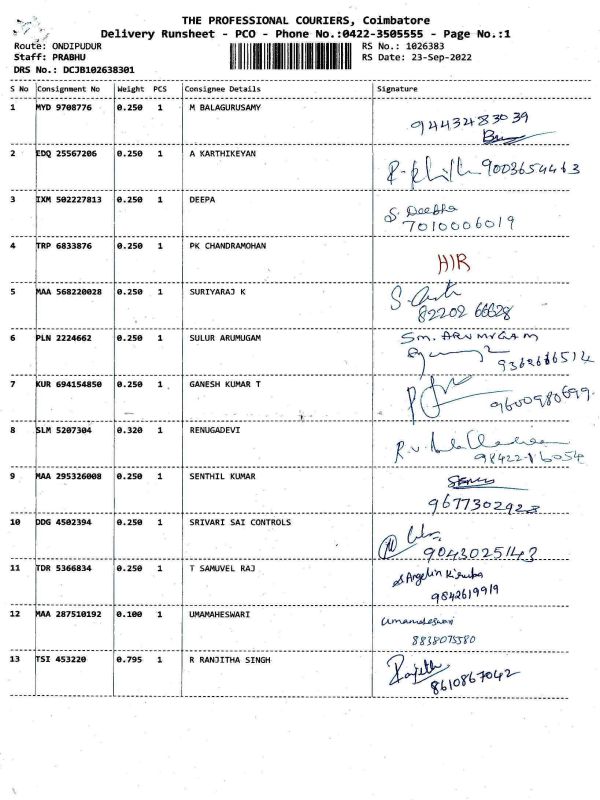 THE PROFESSIONAL COURIERS, Coimbatore
Delivery Runsheet - PCO - Phone No.:0422-3505555 - Page No.:1
Route: ONDIPUDUR RS No.: 1026383
Staff: PRABHU RS Date: 23-Sep-2022
DRS No.: DCJB102638301
S No Consignment No Weight PCS Consignee Details Signature
1 MYD 9708776 0.250 1 M BALAGURUSAMY
9443483039
2 EDQ 25567206 0.250 1 A KARTHIKEYAN
9003654463
3 IXM 502227813 0.250 1 DEEPA
S. Deepha
7010006019
4 TRP 6833876 0.250 1 PK CHANDRAMOHAN
H/R
5 MAA 568220028 0.250 1 SURIYARAJ K
82202 66628
6 PLN 2224662 0.250 1 SULUR ARUMUGAM
Sm. ARUMUGAM
9362666514
7 KUR 694154850 0.250 1 GANESH KUMAR T
9600980699.
8 SLM 5207304 0.320 1 RENUGADEVI
98422-16054
9 MAA 295326008 0.250 1 SENTHIL KUMAR
9677302923
10 DDG 4502394 0.250 1 SRIVARI SAI CONTROLS
9043025143
11 TDR 5366834 0.250 1 T SAMUVEL RAJ
S Angelin Kiruba
9842619919
12 MAA 287510192 0.100 1 UMAMAHESWARI
Umamaheswari
8838075580
13 TSI 453220 0.795 1 R RANJITHA SINGH
8610867042